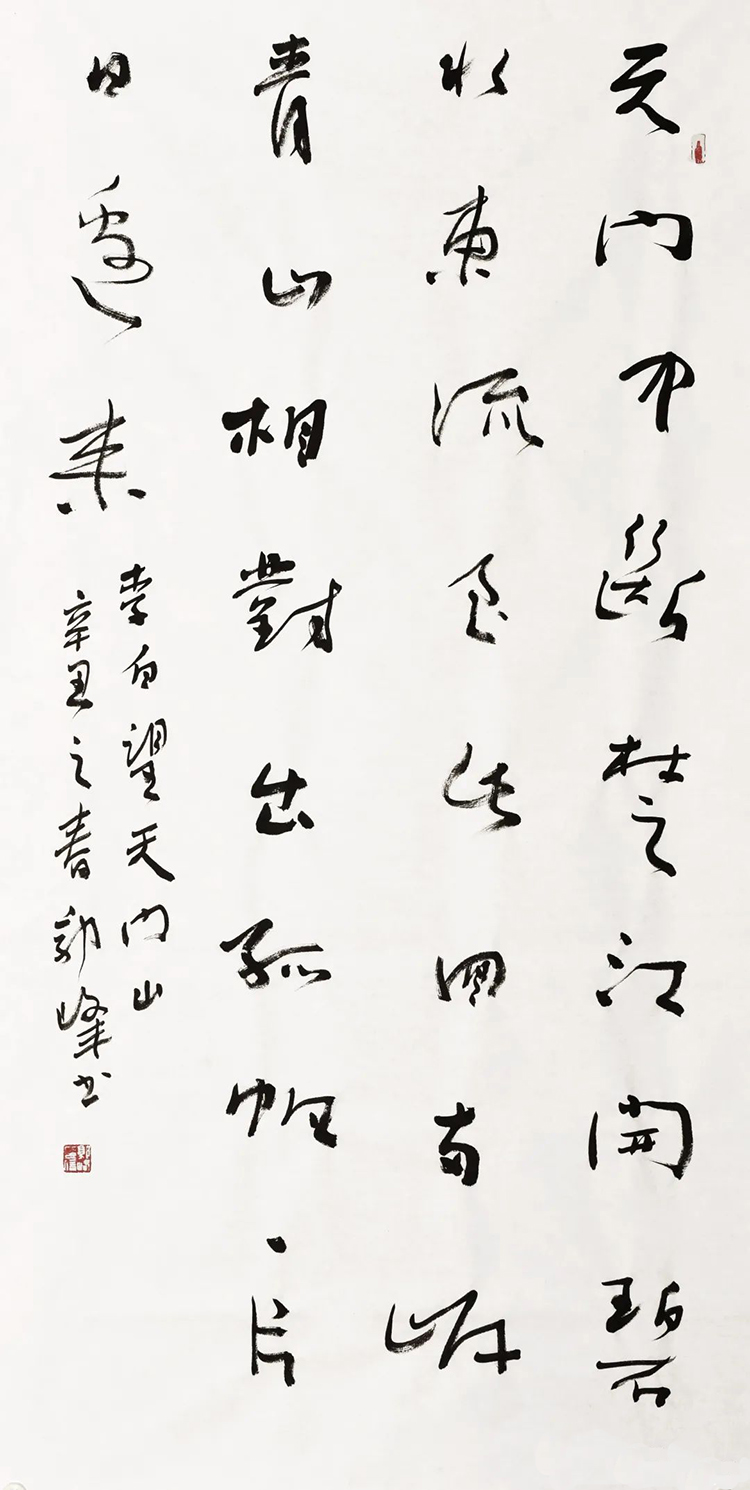 天門中斷楚江開碧
水東流至此回兩岸
青山相對出孤帆一片
日邊來
李白望天門山
辛丑之春郭峰书